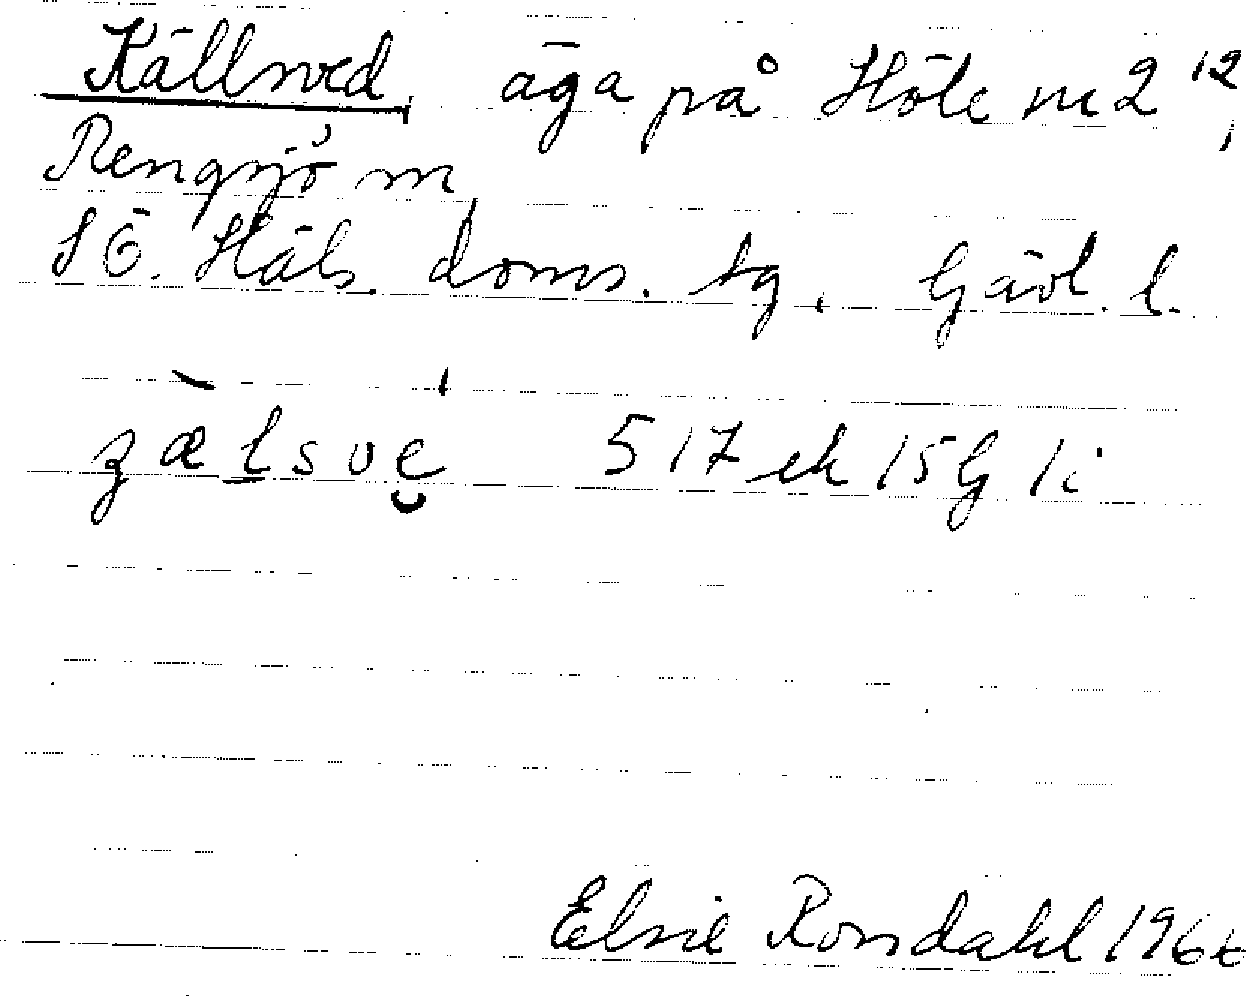 Källsved, äga på Höle nr 2¹²,
Rengsjö sn
SÖ. Häls. doms. tg, Gävl. l.
517 ek 15G 1i
Elsie Rondahl 1966